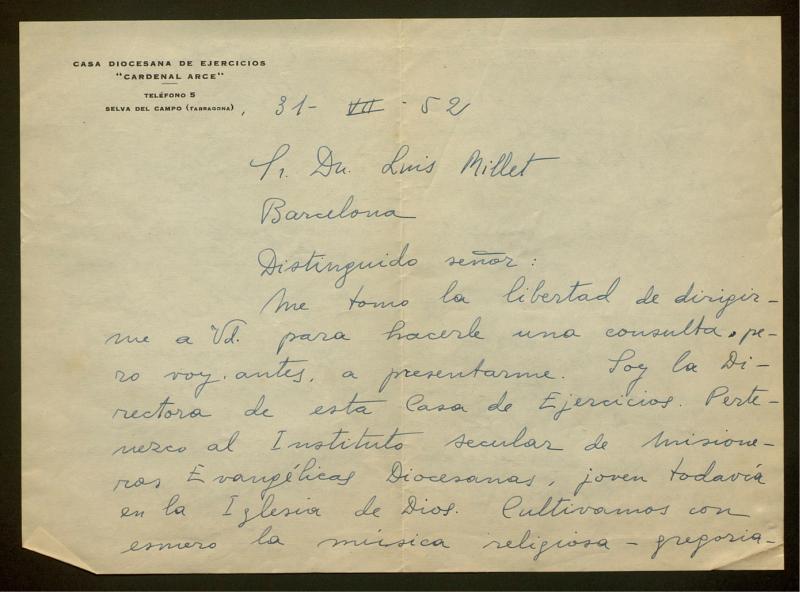 CASA DIOCESANA DE EJERCICIOS
"CARDENAL ARCE"
TELÉFONO 5
SELVA DEL CAMPO (TARRAGONA), 31- VII - 52
Sr. Dn. Luis Millet
Barcelona
Distinguido señor:
Me tomo la libertad de dirigir-
me a Vd. para hacerle una consulta, pe-
ro voy, antes, a presentarme. Soy la Di-
rectora de esta Casa de Ejercicios. Perte-
nezco al Instituto secular de Misione-
ras Evangélicas Diocesanas, joven todavía
en la Iglesia de Dios. Cultivamos con
esmero la música religiosa - gregoria-